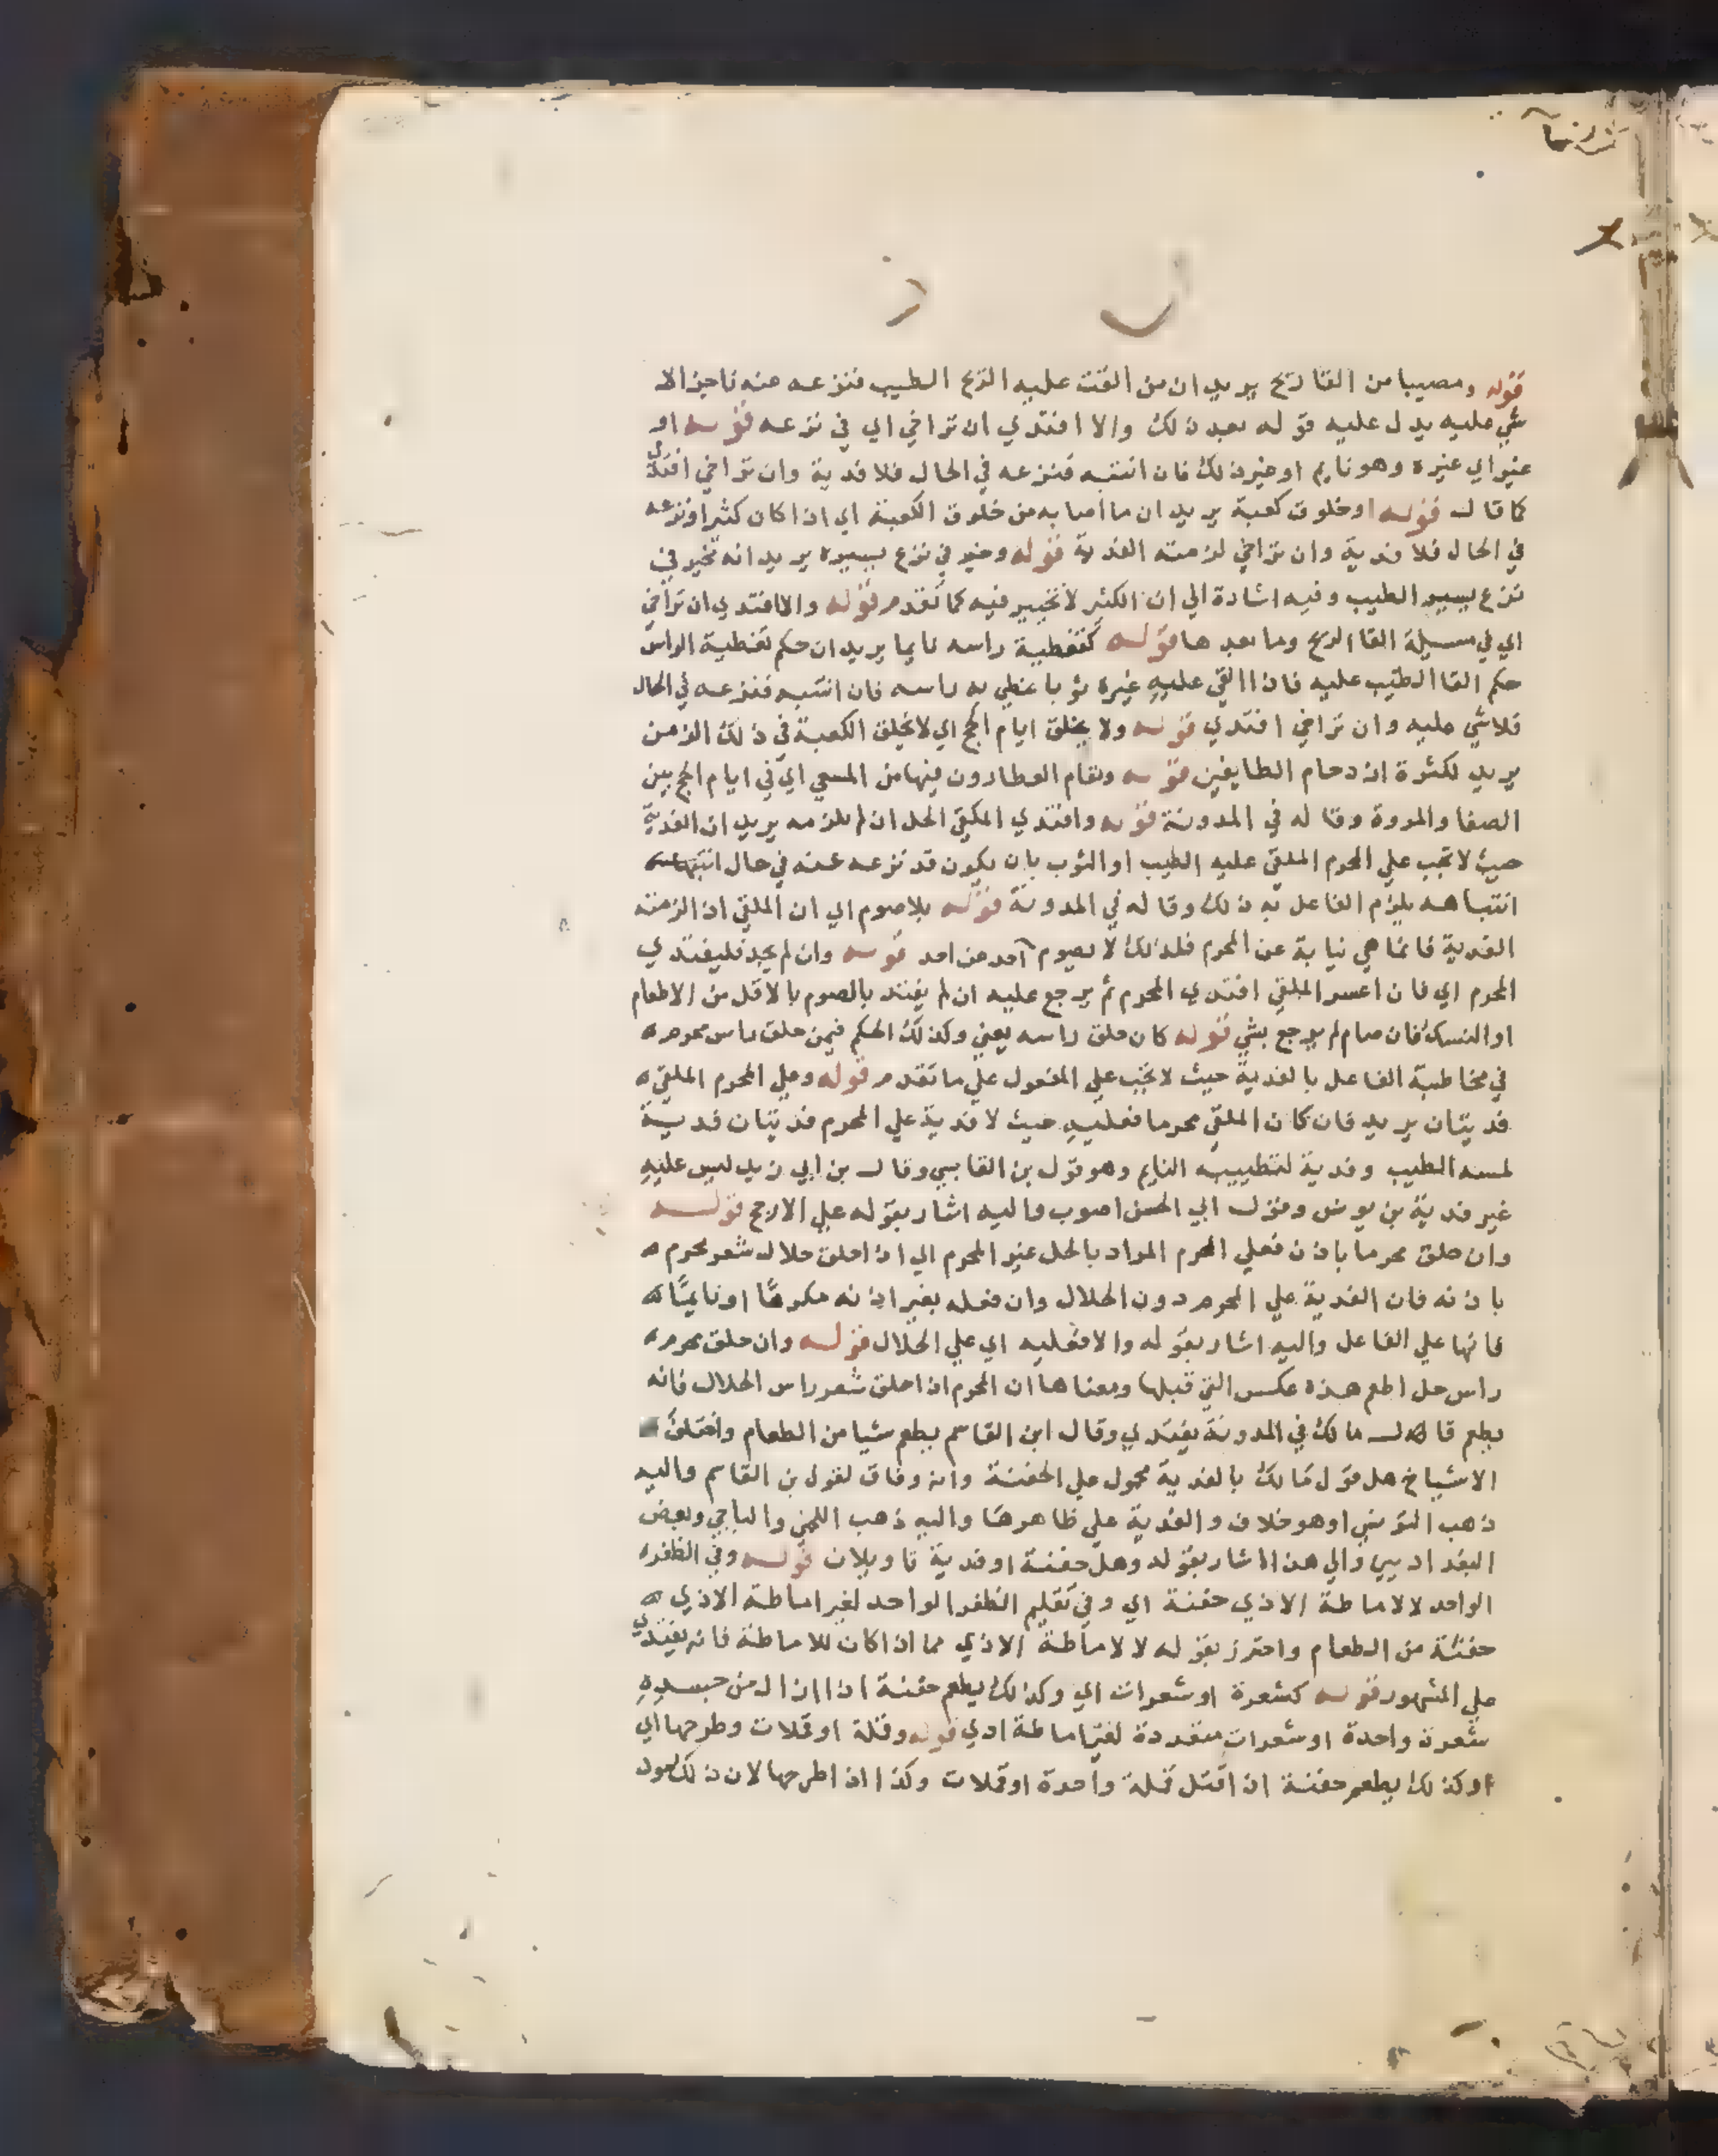 قوله ومصيبا من القا ريح يريد ان من القت عليه الريح الطيب فنزعه عنه ناجزالا
شي عليه يدل عليه قوله بعد ذلك والا افتدي ان تراخي اي في نزعه قوله او
غيراي غيره وهو نايم اوغيرذلك فان انتبه فنزعه في الحال فلا فدية وان تراخي افتدي
كما قال قوله اوخلوق كعبة يريد ان مااصابه من خلوق الكعبة اي اذا كان كثيرا ونزعه
في الحال فلا فدية وان تراخي لزمته الفدية قوله وخير في نزع يسيره يريد انه تخير في
نزع يسير الطيب وفيه اشارة الي ان الكثير لا تخيير فيه كما تقدم قوله والا افتدي ان تراخي
اي في مسيلة القا الريح وما بعدها قوله كتغطية راسه نايما يريد ان حكم تغطية الراس
حكم القا الطيب عليه فاذا القي عليه غيره ثوبا غطي به راسه فان انتبه فنزعه في الحال
فلاشي عليه وان تراخي افتدي قوله ولا يخلق ايام الحج اي لا تخلق الكعبة في ذلك الزمن
يريد لكثرة ازدحام الطايفين قوله وتقام العطارون فيها من المسعي اي في ايام الحج بين
الصفا والمروة وقاله في المدونة قوله وافتدي الملقي الحل ان لم تلزمه يريد ان الفدية
حيث لا تجب علي المحرم الملقي عليه الطيب او الثوب بان يكون قد نزعه عنه في حال
انتباهه يلزم الفاعل به ذلك وقاله في المدونة قوله بلا صوم اي ان الملقي اذا لزمته
الفدية فانما هي نيابة عن المحرم فلذلك لا يصوم احد عن احد قوله وان لم يجد فليفتدي
المحرم اي فان اعسر الملقي افتدي المحرم ثم يرجع عليه ان لم يفتد بالصوم بالاقل من الاطعام
او النسك فان صام لم يرجع بشي قوله كان حلق راسه يعني وكذلك الحكم فيمن حلق راس محرم
في مخاطبة الفاعل بالفدية حيث لا تجب علي المفعول علي ما تقدم قوله وعلي المحرم الملقي
فديتان يريد فان كان الملقي محرما فعليه حيث لا فدية علي المحرم فديتان فدية
لمسه الطيب وفدية لتطييبه النايم وهو قول بن القابسي وقال بن ابي زيد ليس عليه
غير فدية بن يونس وقول ابي الحسن اصوب واليه اشار بقوله علي الارجح قوله
وان حلق محرما باذن فعلي المحرم المراد بالحل غير المحرم اي اذا حلق حلال شعر محرم
باذنه فان الفدية علي المحرم دون الحلال وان فعله بغير اذنه مكرها او نايمًا
فانها علي الفاعل واليه اشار بقوله والا فعليه اي علي الحلال قوله وان حلق محرم
راس حل اطعم هذه عكس التي قبلها ومعناها ان المحرم اذا حلق شعر راس الحلال فانه
يطعم قال مالك في المدونة يفتدي وقال ابن القاسم يطعم شيا من الطعام واختلف
الاشياخ هل قول مالك بالفدية محمول علي الحفنة وانه وفاق لقول بن القاسم واليه
ذهب التونسي او هو خلاف والفدية علي ظاهرها واليه ذهب اللخمي والباجي وبعض
البغداديين والي هذا اشار بقوله وهل حفنة او فدية تاويلان قوله وفي الظفر
الواحد لا لاماطة الاذي حفنة اي وفي تقليم الظفر الواحد لغير اماطة الاذي
حفنة من الطعام واحترز بقوله لا لاماطة الاذي مما اذا كان للاماطة فانه يفتدي
علي المشهور قوله كشعرة او شعرات اي وكذلك يطعم حفنة اذا ازال من جسده
شعرة واحدة او شعرات متعددة لغير اماطة اذي قوله وقملة او قملات وطرحها اي
اوكذلك يطعم حفنة اذا قتل قملة واحدة او قملات وكذا اذا طرحها لان ذلك